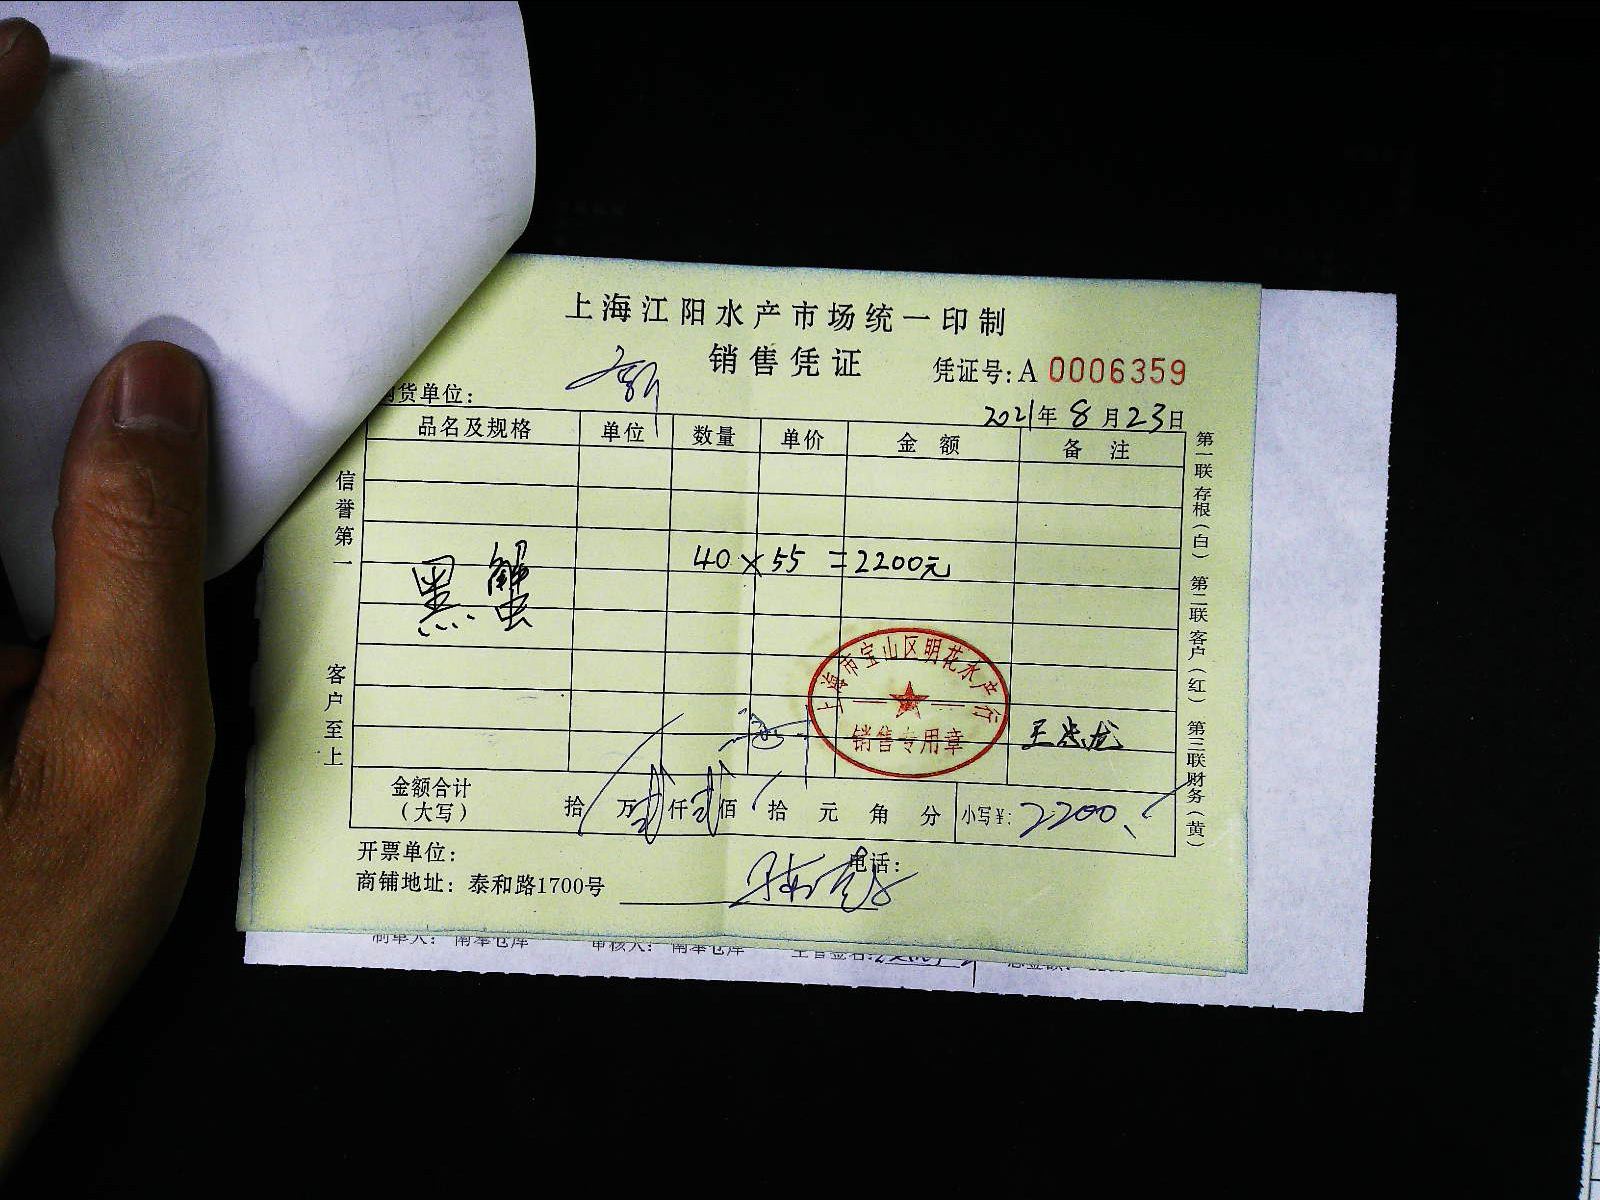 上海江阳水产市场统一印制
销售凭证
凭证号:A 0006359
货单位:
2021年8月23日
品名及规格 单位 数量 单价 金额 备注
黑蟹 40×55=2200元
上海市宝山区明花水产行
销售专用章
金额合计(大写) 拾 万 贰 仟 贰 佰 拾 元 角 分 小写¥: 2200
开票单位: 电话:
商铺地址: 泰和路1700号
信誉第一 客户至上
第一联 存根(白) 第二联 客户(红) 第三联 财务(黄)
制单人: 南奉仓库 审核人: 南奉仓库